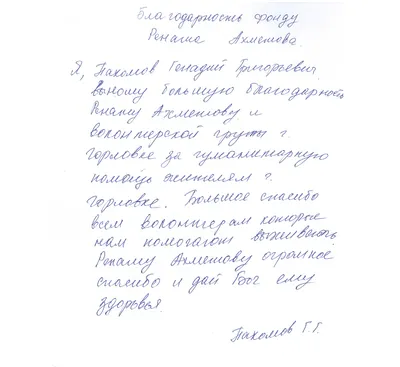 Благодарность фонду
Рената Ахметова.
Я, Пахомов Генадий Григорьевич
выношу большую благодарность
Ренату Ахметову и
волонтерской групы г.
Горловке за гуманитарную
помощь жителям г.
Горловке. Большое спасибо
всем волонтерам которые
нам помогают выживать.
Ренату Ахметову огромное
спасибо и дай Бог ему
здоровья.
Пахомов Г.Г.